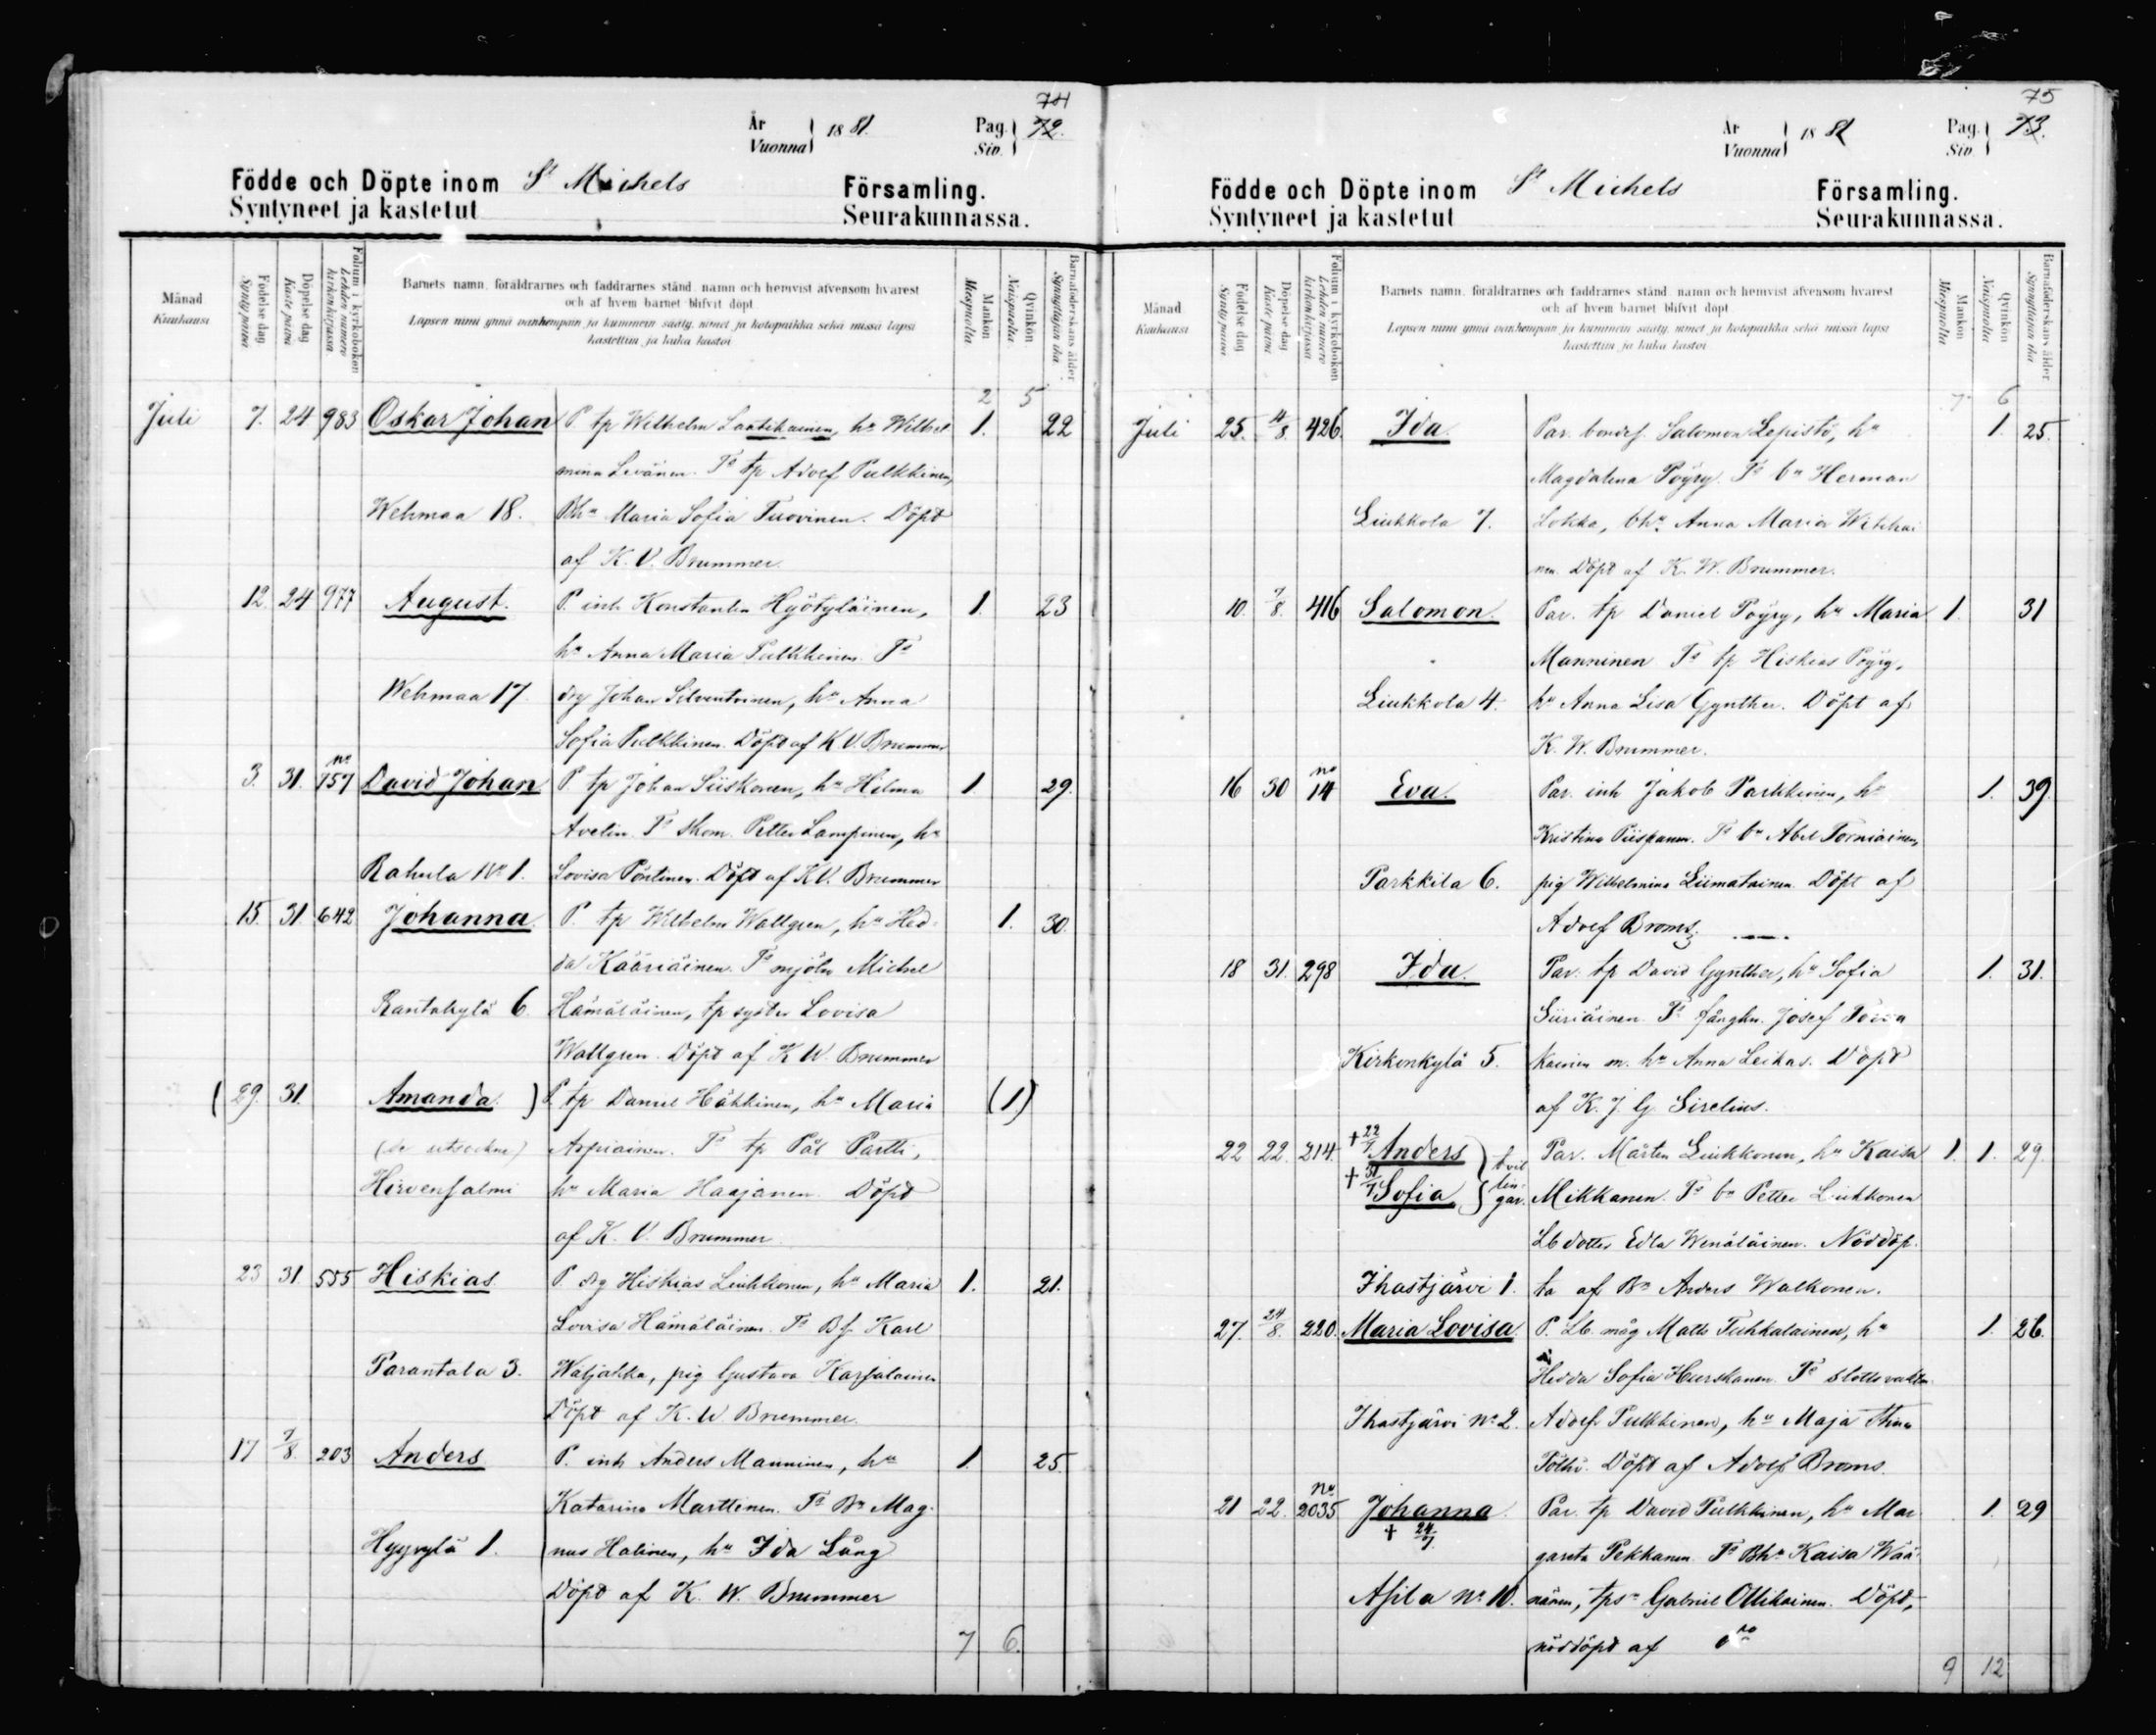 74
År Vuonna 18 81. Pag. Siv. 72.
Födde och Döpte inom St Michels Församling.
Syntyneet ja kastetut Seurakunnassa.
Månad Kuukausi
Födelse dag Synty päivä
Döpelse dag Kaste päivä
Folium i kyrkoboken Lehden numero kirkonkirjassa
Barnets namn, föräldrarnes och faddrarnes stånd, namn och hemvist äfvensom hvarest
och af hvem barnet blifvit döpt
Lapsen nimi ynnä vanhempain ja kummein sääty, nimet ja kotopaikka sekä missä lapsi
kastettiin ja kuka kastoi
Mankön Miespuolia
Qvinkön Naispuolia
Barnaföderskans ålder Synnyttäjän ikä
2 5
Juli 7. 24 983 Oskar Johan P. tp Wilhelm Laatikainen, hu Wilhel 1. 22
mina Levänen. Fs tp Adolf Pulkkinen,
Wehmaa 18. Bhu Maria Sofia Tuovinen. Döpt
af K. V. Brummer
12. 24 977 August. P. inh Konstantin Hyötyläinen, 1. 23
hu Anna Maria Pulkkinen. Fs
Wehmaa 17. drg Johan Silventoinen, hu Anna
Sofia Pulkkinen. Döpt af K V. Brummer
3. 31. no 757 David Johan P. tp Johan Siiskonen, hu Hilma 1. 29.
Avelin. Fs skom. Petter Lampinen, hu
Rahula No 1. Lovisa Pöntinen. Döpt af K V. Brummer
15. 31. 642 Johanna. P. tp Wilhelm Wallgren, hu Hed- 1. 30.
da Kääriäinen. Fs mjöln Michel
Rantakylä 6. Hämäläinen, tp syster Lovisa
Wallgren. Döpt af K W. Brummer
( 29. 31. Amanda. ) P. tp Daniel Häkkinen, hu Maria (1.)
(de utsockne) Arpiainen. Fs tp Pål Partti,
Hirvensalmi hu Maria Haajanen. Döpt
af K. V. Brummer.
23 31. 555 Hiskias P. drg Hiskias Liukkonen, hu Maria 1. 21.
Lovisa Hämäläinen. Fs Bf. Karl
Parantala 3. Waljakka, pig Gustava Karjalainen
Döpt af K. W Brummer.
17 7/8. 203 Anders P. inh Anders Manninen, hu 1. 25.
Katarina Marttinen. Fs Bn Mag-
Hyyrylä 1. nus Halinen, hu Ida Lång
Döpt af K. W. Brummer
7 6.
75
År Vuonna 18 81 Pag. Siv. 73.
Födde och Döpte inom St Michels Församling.
Syntyneet ja kastetut Seurakunnassa.
Månad Kuukausi
Födelse dag Synty päivä
Döpelse dag Kaste päivä
Folium i kyrkoboken Lehden numero kirkonkirjassa
Barnets namn, föräldrarnes och faddrarnes stånd, namn och hemvist äfvensom hvarest
och af hvem barnet blifvit döpt
Lapsen nimi ynnä vanhempain ja kummein sääty, nimet ja kotopaikka sekä missä lapsi
kastettiin ja kuka kastoi
Mankön Miespuolia
Qvinkön Naispuolia
Barnaföderskans ålder Synnyttäjän ikä
7 6
Juli 25. 4/8. 426. Ida Par. bondes. Salomon Lepistö, hu 1. 25.
Magdalena Pöyry. Fs bn Herman
Liukkola 7. Lokka, bhu Anna Maria Wihkai
nen. Döpt af K. W. Brummer.
10. 7/8. 416 Salomon. Par. tp Daniel Pöyry, hu Maria 1. 31
Manninen Fs tp. Hiskias Pöyry,
Liukkola 4. hu Anna Lisa Gynther. Döpt af
K. W. Brummer.
16 30 no 14 Eva. Par. inh Jakob Partikinen, hu 1. 39.
Kristina Piispanen. Fs bn Abel Torniainen,
Parkkila 6. pig Wilhelmina Liimatainen. Döpt af
Adolf Broms.
18 31. 298 Ida. Par. tp David Gynther, hu Sofia 1. 31.
Siiriäinen. Fs fångkn. Josef
Kirkonkylä 5. kainen m. hu Anna Leikas. Döpt
af K. J. G. Sirelius.
22 22. 214. † 22/7 Anders Par. Mårten Liukkonen, hu Kaisa 1. 1. 29.
† 31/7 Sofia tvil lin- gar. Mikkanen. Fs bn Petter Liukkonen
Lb dotter Edla Wenäläinen. Nöddöp-
Ihastjärvi 1. ta af Bn Anders Walkonen.
27. 24/8. 220. Maria Lovisa. P. Lb. måg Matts Tuhkalainen, hu 1. 26.
Hedda Sofia Hurskanen. Fs slottsvaktm.
Ihastjärvi No 2. Adolf Pulkkinen, hu Maja Stina
Pölhö. Döpt af Adolf Broms.
21 22. no 2035 Johanna. Par. tp David Pulkkinen, hu Mar- 1. 29
† 24/7
gareta Pekkanen. Fs Bhu Kaisa Wää-
Asila No 10. nänen, tps Gabriel Ollikainen. Döpt,
nöddöpt af
9 12